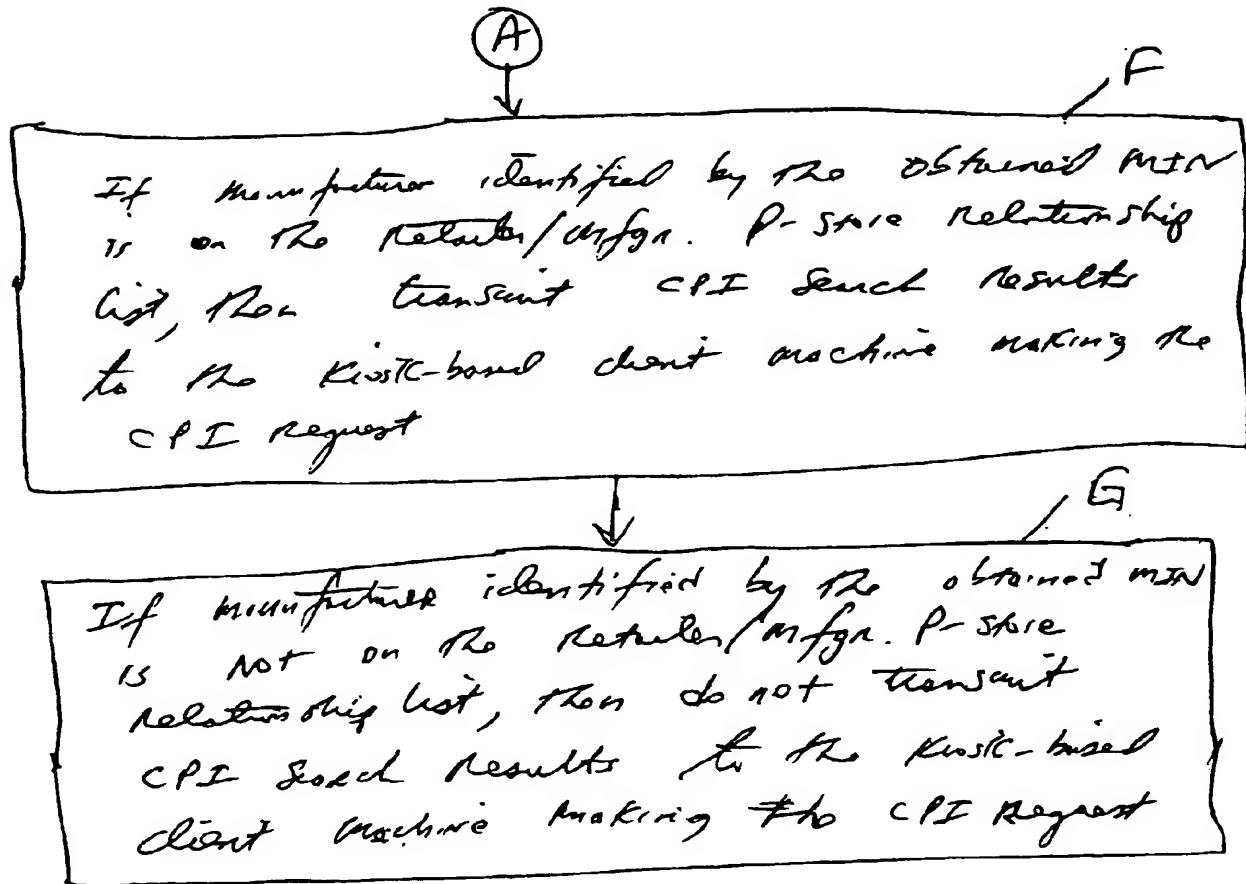 A
F
If manufacturer identified by the obtained MIN
is on the Retailer/Mfgr. P-Store Relationship
list, then transmit CPI Search Results
to the Kiosk-based client machine making the
CPI Request
G
If manufacturer identified by the obtained MIN
is not on the Retailer/Mfgr. P-Store
Relationship list, then do not transmit
CPI Search Results to the Kiosk-based
client machine making the CPI Request